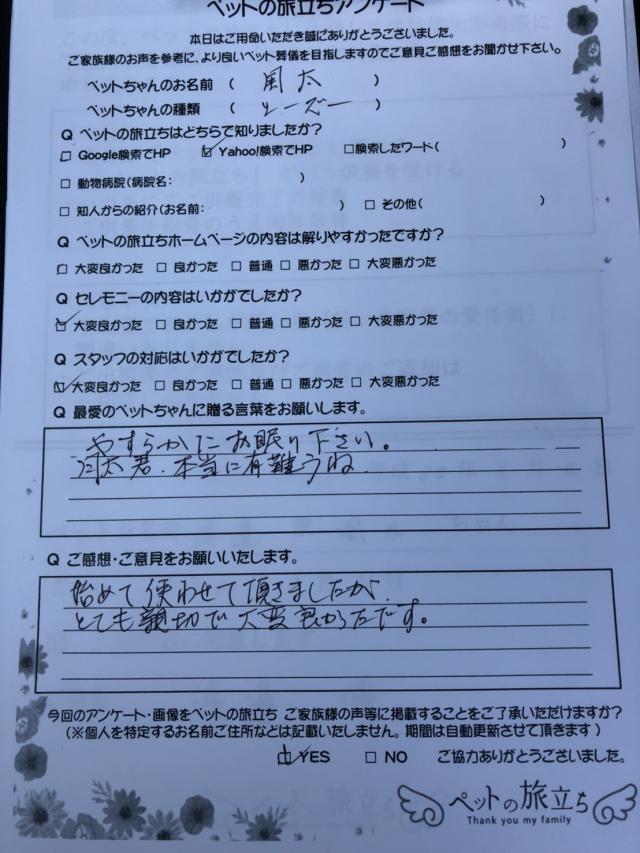 ペットの旅立ちアンケート
本日はご用命いただき誠にありがとうございました。
ご家族様のお声を参考に、より良いペット葬儀を目指しますのでご意見ご感想をお聞かせ下さい。
ペットちゃんのお名前 ( 風太 )
ペットちゃんの種類 ( シーズー )
Q ペットの旅立ちはどちらで知りましたか?
□ Google検索でHP ☑ Yahoo!検索でHP □検索したワード( )
□ 動物病院(病院名: )
□ 知人からの紹介(お名前: ) □ その他( )
Q ペットの旅立ちホームページの内容は解りやすかったですか?
□ 大変良かった □ 良かった □ 普通 □ 悪かった □ 大変悪かった
Q セレモニーの内容はいかがでしたか?
☑ 大変良かった □ 良かった □ 普通 □ 悪かった □ 大変悪かった
Q スタッフの対応はいかがでしたか?
☑ 大変良かった □ 良かった □ 普通 □ 悪かった □ 大変悪かった
Q 最愛のペットちゃんに贈る言葉をお願いします。
やすらかにお眠り下さい。
太君、本当に有難うね
Q ご感想・ご意見をお願いいたします。
始めて使わせて頂きましたが、
とても親切で大変良かったです。
今回のアンケート・画像をペットの旅立ち ご家族様の声等に掲載することをご了承いただけますか?
(※個人を特定するお名前ご住所などは記載いたしません。期間は自動更新させて頂きます)
☑ YES □ NO ご協力ありがとうございました。
ペットの旅立ち
Thank you my family